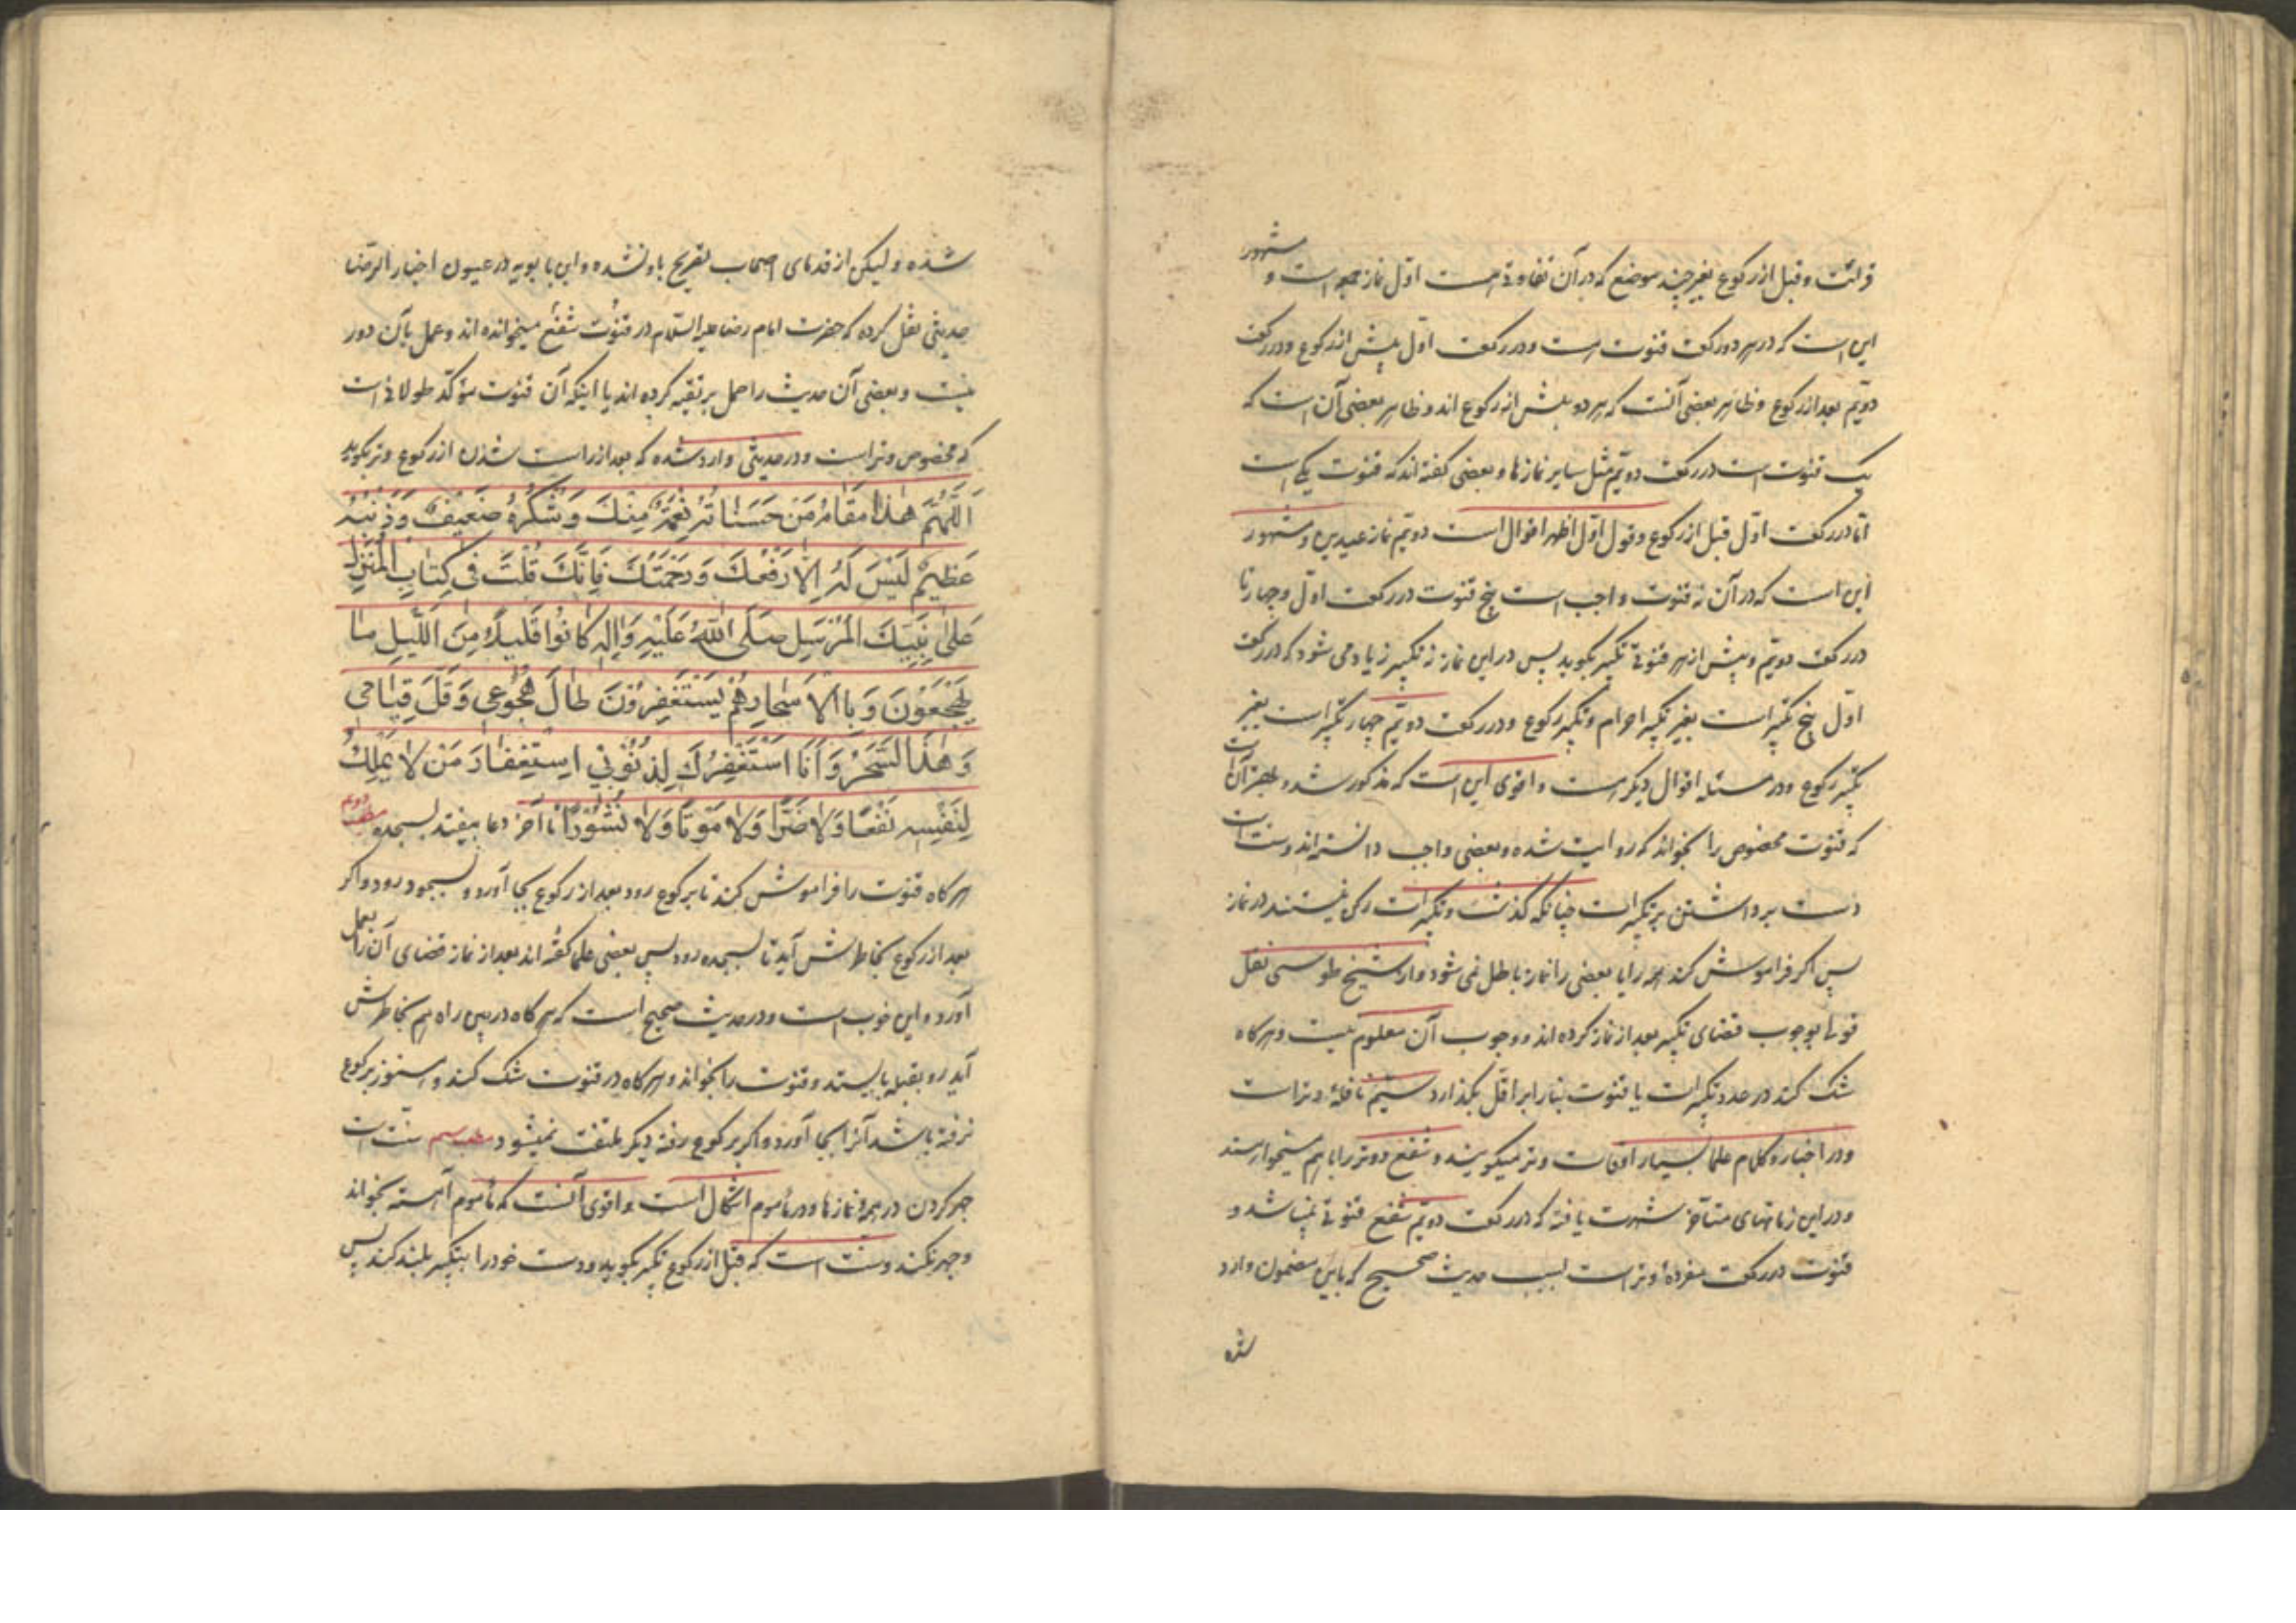 قرائت و قبل از رکوع بغیر چند موضع که در آن تفاوتی هست اول نماز جمعه است و مشهور
این است که در هر دو رکعت قنوت است و در رکعت اول پیش از رکوع و در رکعت
دویّم بعد از رکوع و ظاهر بعضی آنست که هر دو پیش از رکوع اند و ظاهر بعضی آن است که
یک قنوت است در رکعت دویّم مثل سایر نمازها و بعضی گفته اند که قنوت یکی است
امّا در رکعت اول قبل از رکوع و قول اول اظهر اقوال است دویّم نماز عیدین و مشهور
این است که در آن نه قنوت واجب است پنج قنوت در رکعت اول و چهار تا
در رکعت دویّم و پیش از هر قنوتی تکبیر بگوید پس در این نماز نه تکبیر زیاد می شود که در رکعت
اول پنج تکبیر است بغیر تکبیر احرام و تکبیر رکوع و در رکعت دویّم چهار تکبیر است بغیر
تکبیر رکوع و در مسئله اقوال دیگر هست و اقوی این است که مذکور شد و بهتر آن است
که قنوت مخصوص را بخواند که روایت شده و بعضی واجب دانسته اند و سنت است
دست برداشتن بر تکبیرات چنانکه گذشت و تکبیرات رکن نیستند در نماز
پس اگر فراموش کند همه را یا بعضی را نماز باطل نمی شود و از شیخ طوسی نقل
قول بوجوب قضای تکبیر بعد از نماز کرده اند و وجوب آن معلوم نیست و هرگاه
شک کند در عدد تکبیرات یا قنوت بنا را بر اقل بگذارد سیّم نافلهٔ وتر است
و در اخبار و کلام علما بسیار اوقات وتر میگویند و شفع و وتر را با هم میخواهند
و در این زمانهای متأخر شهرت یافته که در رکعت دویّم شفع قنوتی نمیباشد و
قنوت در رکعت مفردهٔ وتر است بسبب حدیث صحیح که باین مضمون وارد
شده
شده و لیکن از قدمای اصحاب تصریح باو نشده و ابن بابویه در عیون اخبار الرضا
حدیثی نقل کرده که حضرت امام رضا علیه السلام در قنوت شفع میخوانده اند و عمل بآن دور
نیست و بعضی آن حدیث را حمل بر تقیه کرده اند یا اینکه آن قنوت مؤکّد طولانی است
که مخصوص وتر است و در حدیثی وارد شده که بعد از راست شدن از رکوع وتر بگوید
اَللّٰهُمَّ هٰذا مَقامُ مَنْ حَسَناتُهُ نِعْمَةٌ مِنْكَ وَشُكْرُهُ ضَعيفٌ وَذَنْبُهُ
عَظيمٌ لَيْسَ لَهُ اِلّا رَفْعُكَ وَرَحْمَتُكَ فَاِنَّكَ قُلْتَ فى كِتابِ الْمُنْزَلِ
عَلىٰ نَبِيِّكَ الْمُرْسَلِ صَلَّى اللهُ عَلَيْهِ وَاٰلِهِ كانُوا قَليلاً مِنَ اللَّيْلِ ما
يَهْجَعُونَ وَبِالْاَسْحارِ هُمْ يَسْتَغْفِرُونَ طالَ هُجُوعى وَقَلَّ قِيامى
وَهٰذَا السَّحَرُ وَاَنَا اَسْتَغْفِرُكَ لِذُنُوبى اسْتِغْفارَ مَنْ لا يَمْلِكُ
لِنَفْسِهِ نَفْعاً وَلا ضَرّاً وَلا مَوْتاً وَلا نُشُوراً تا آخر دعا بیفتد بسجده مطلب دوم
هرگاه قنوت را فراموش کند تا برکوع رود بعد از رکوع بجا آورد و بسجود رود و اگر
بعد از رکوع بخاطرش آید تا بسجده رود پس بعضی علما گفته اند بعد از نماز قضای آن را بعمل
آورد و این خوب است و در حدیث صحیح است که هرگاه در بین راه هم بخاطرش
آید رو بقبله بایستد و قنوت را بخواند و هرگاه در قنوت شک کند و هنوز برکوع
نرفته باشد آنرا بجا آورد و اگر برکوع رفته دیگر ملتفت نمیشود مطلب سیم سنّت است
جهر کردن در همه نمازها و در مأموم اشکال است و اقوی آنست که مأموم آهسته بخواند
و جهر نکند و سنّت است که قبل از رکوع تکبیر بگوید و دست خود را بتکبیر بلند کند پس